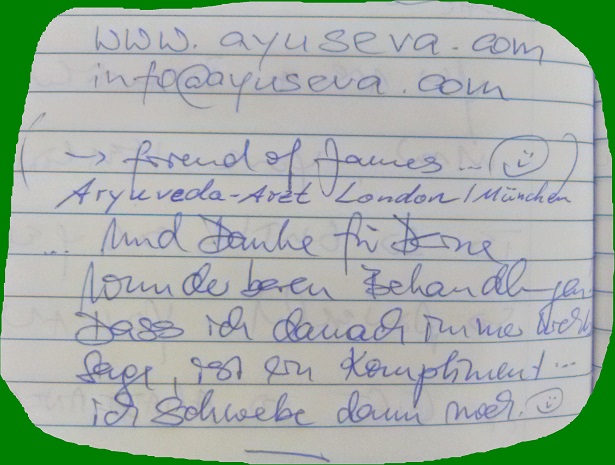 www.ayuseva.com
info@ayuseva.com
(→ friend of James... ☺)
Aryuveda-Arzt London/München
... Und Danke für Deine
wunderbaren Behandlungen.
Dass ich danach immer
sage, ist ein Kompliment...
ich schwebe dann noch. ☺